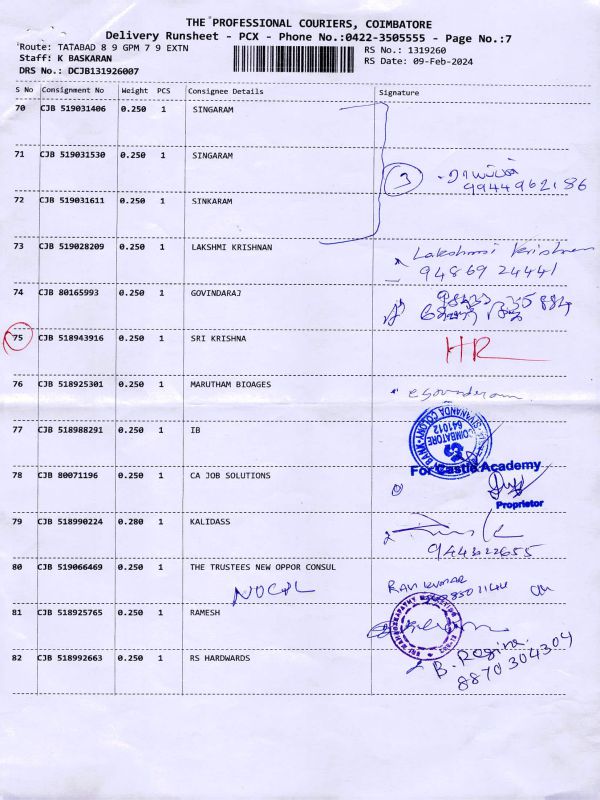 THE PROFESSIONAL COURIERS, COIMBATORE
Delivery Runsheet - PCX - Phone No.:0422-3505555 - Page No.:7
Route: TATABAD 8 9 GPM 7 9 EXTN
RS No.: 1319260
Staff: K BASKARAN
RS Date: 09-Feb-2024
DRS No.: DCJB131926007
S No Consignment No Weight PCS Consignee Details Signature
70 CJB 519031406 0.250 1 SINGARAM
71 CJB 519031530 0.250 1 SINGARAM
3
9944962186
72 CJB 519031611 0.250 1 SINKARAM
73 CJB 519028209 0.250 1 LAKSHMI KRISHNAN
Lakshmi Krishnan
94869 24441
74 CJB 80165993 0.250 1 GOVINDARAJ
75 CJB 518943916 0.250 1 SRI KRISHNA
HR
76 CJB 518925301 0.250 1 MARUTHAM BIOAGES
77 CJB 518988291 0.250 1 IB
SIVANANDA COLONY
COIMBATORE
641012
78 CJB 80071196 0.250 1 CA JOB SOLUTIONS
For Castle Academy
Proprietor
79 CJB 518990224 0.280 1 KALIDASS
944322655
80 CJB 519066469 0.250 1 THE TRUSTEES NEW OPPOR CONSUL
NOCPL
Ravi Kumar
81 CJB 518925765 0.250 1 RAMESH
82 CJB 518992663 0.250 1 RS HARDWARDS
B. Regina
8870 304304